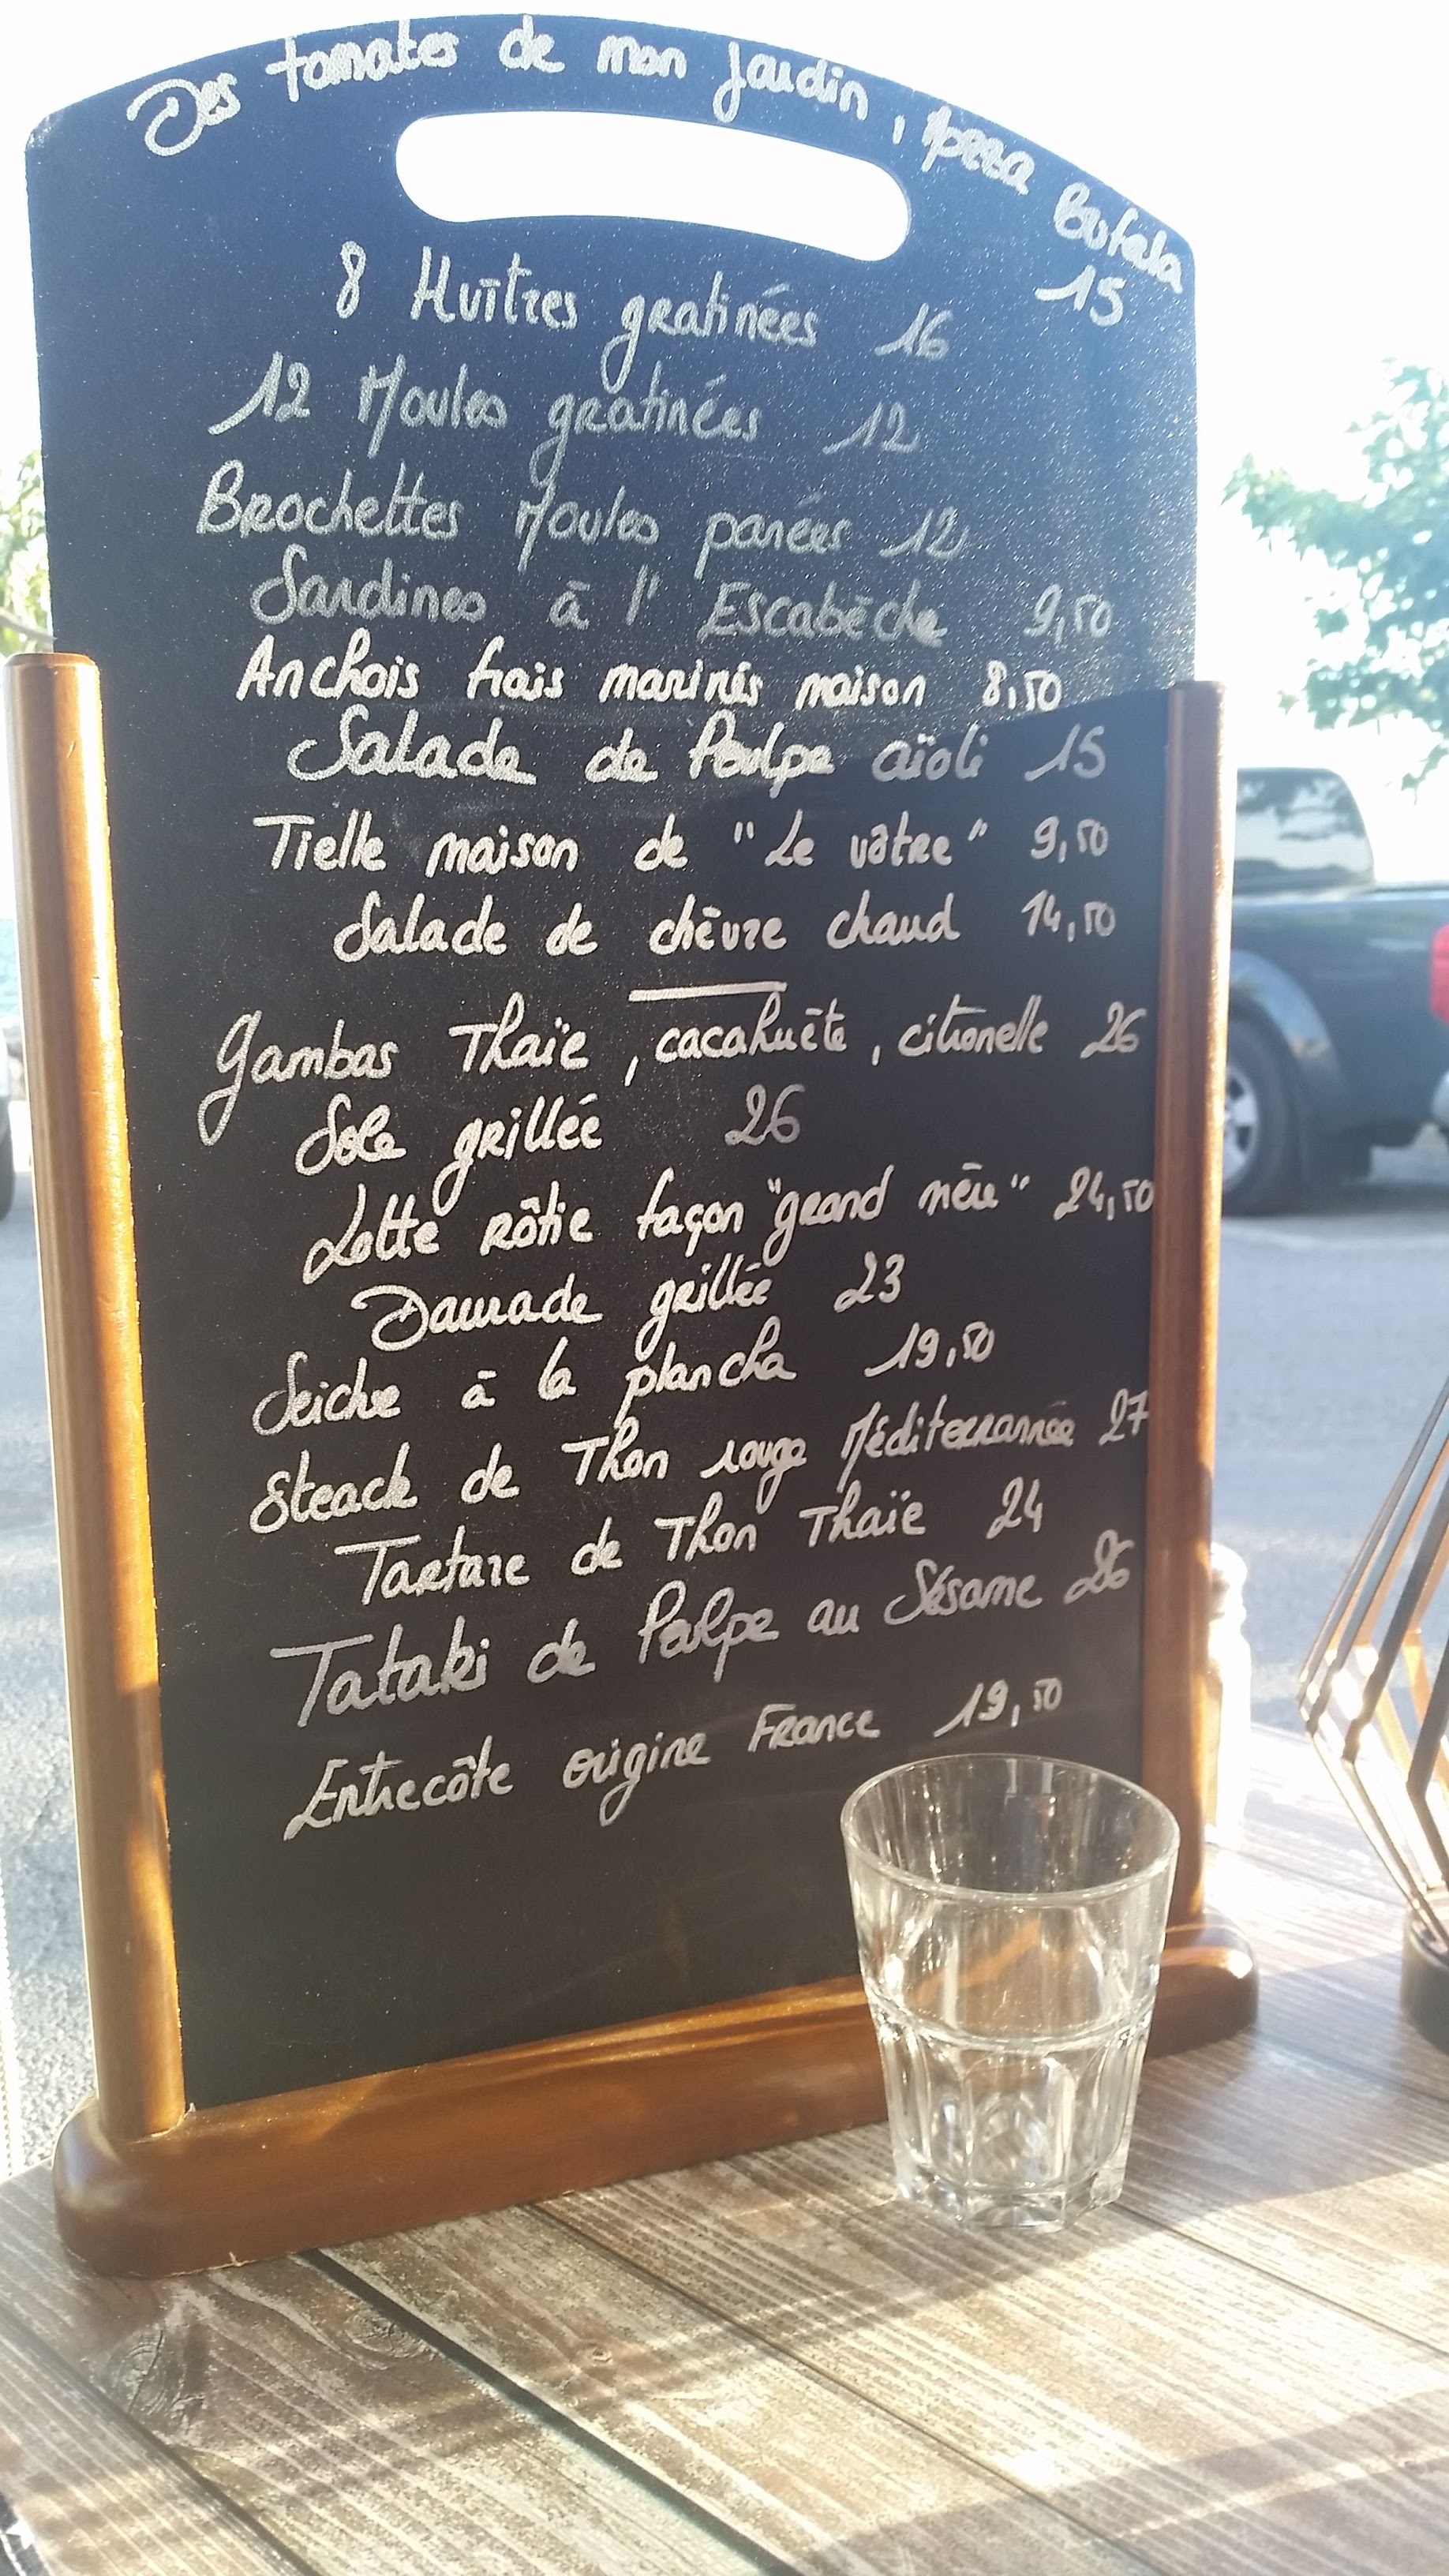 Des tomates de mon Jardin, Mozza Bufala
15
8 Huîtres gratinées 16
12 Moules gratinées 12
Brochettes Moules panées 12
Sardines à l' Escabèche 9,50
Anchois frais marinés maison 8,50
Salade de Poulpe aïoli 15
Tielle maison de "Le vôtre" 9,50
Salade de chèvre chaud 14,50
Gambas Thaïe, cacahuète, citronelle 26
Sole grillée 26
Lotte rôtie façon "grand mère" 24,50
Daurade grillée 23
Seiche à la plancha 19,50
Steack de Thon rouge Méditerrannée 27
Tartare de Thon Thaïe 24
Tataki de Poulpe au Sésame 26
Entrecôte origine France 19,50